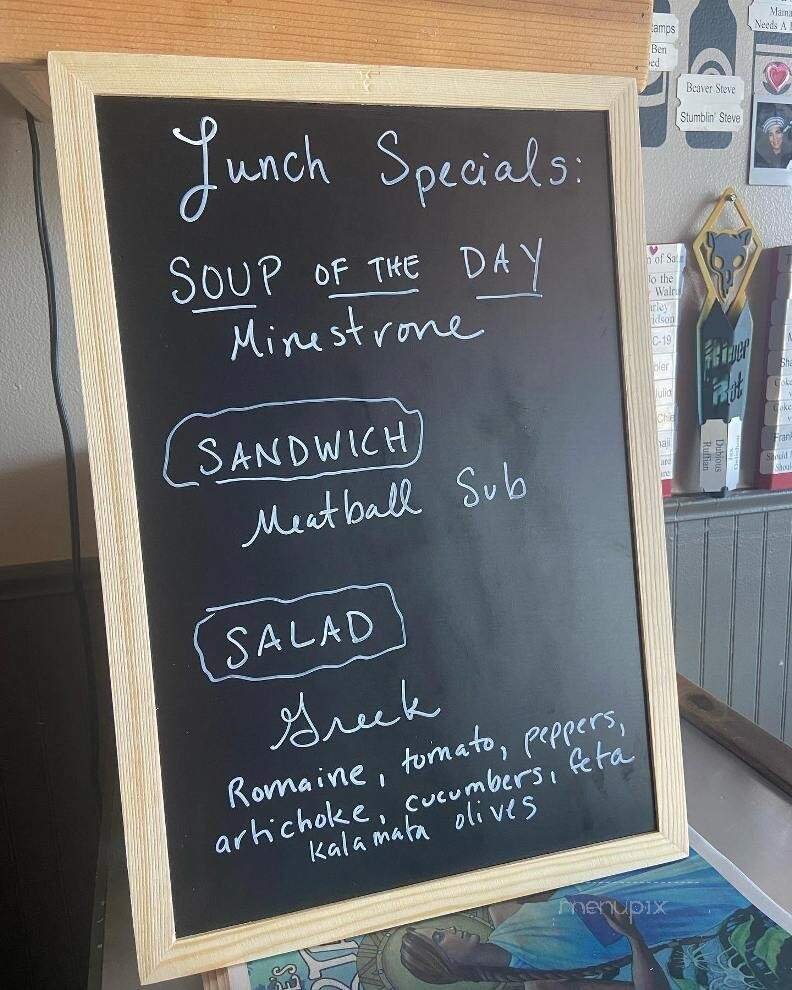 Lunch Specials:
SOUP OF THE DAY
Minestrone
SANDWICH
Meatball Sub
SALAD
Greek
Romaine, tomato, peppers,
artichoke, cucumbers, feta
kalamata olives
Beaver Steve
Stumblin' Steve
Mama
Needs A
Ben
C-19
Dubious
Ruffian
menupix